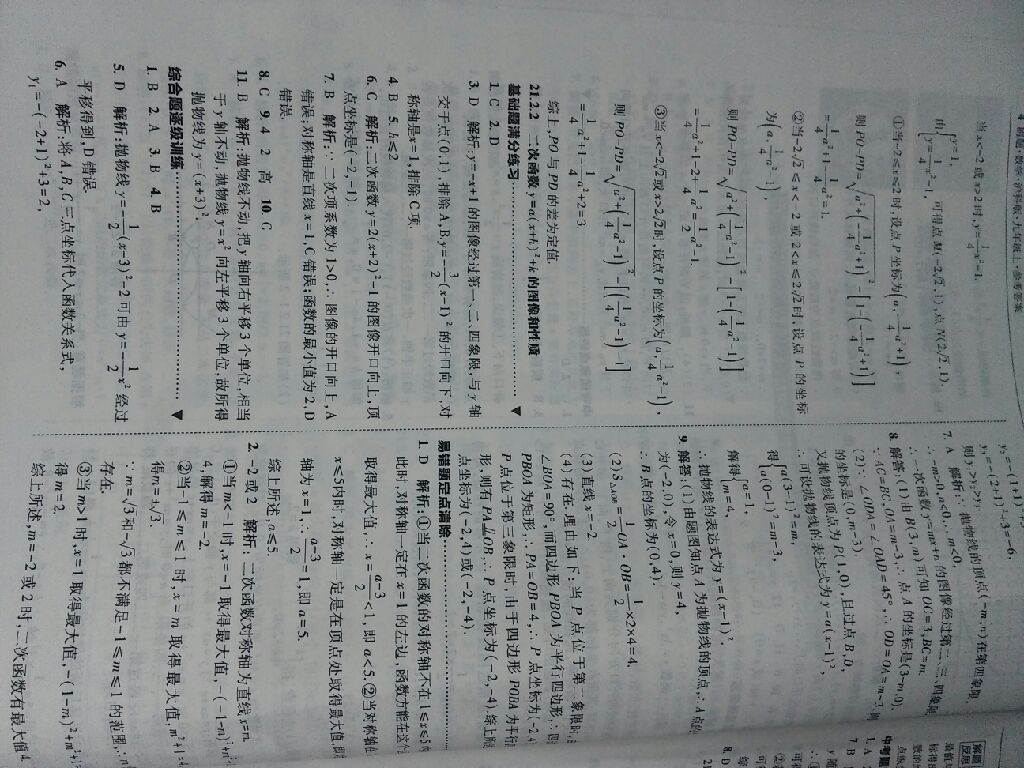 当x<-2或x>2时,y=1/4x²-1.
可得点M(-2√2,1),点N(2√2,1).
①当-2≤x≤2时,设点P坐标为(a,-1/4a²+1),
则PO-PD=√(a²+(-1/4a²+1)²)-[1-(-1/4a²+1)]
=1/4a²+1-1/4a²=1.
②当-2√2≤x<-2或2<x≤2√2时,设点P的坐标
为(a,1/4a²-1),
则PO-PD=√(a²+(1/4a²-1)²)-[1-(1/4a²-1)]
=1/4a²+1-2+1/4a²=1/2a²-1.
③当x<-2√2或x>2√2时,设点P的坐标为(a,1/4a²-1),
则PO-PD=√(a²+(1/4a²-1)²)-[(1/4a²-1)-1]
=1/4a²+1-1/4a²+2=3
综上,PO与PD的差为定值.
21.2.2 二次函数y=a(x+h)²+k的图像和性质
基础题满分练习
1. C 2. D
3. D 解析:y=-x+1的图像经过第一、二、四象限,与y轴
交于点(0,1),排除A,B,y=-3/2(x-1)²的开口向下,对
称轴是x=1,排除C项.
4. B 5. h≤2
6. C 解析:二次函数y=2(x+2)²-1的图像开口向上,顶
点坐标是(-2,-1).
7. B 解析:∵二次项系数为1>0,∴图像的开口向上,A
错误;对称轴是直线x=1,C错误;函数的最小值为2,D
错误.
8. C 9. 4 2 高 10. C
11. B 解析:抛物线不动,把y轴向右平移3个单位,相当
于y轴不动,抛物线y=x²向左平移3个单位,故所得
抛物线为y=(x+3)².
综合题逐级训练
1. B 2. A 3. B 4. B
5. D 解析:抛物线y=-1/2(x-3)²-2可由y=-1/2x²经过
平移得到,D错误.
6. A 解析:将A,B,C三点坐标代入函数关系式,
y₁=-(-2+1)²+3=2,
y₃=-(2+1)²+3=-6,
则y₁>y₂>y₃.
7. A 解析:∵抛物线的顶点(-m,n)在第四象限,
∴-m>0,n<0,∴m<0,
∴一次函数y=mx+n的图像经过第二、三、四象限
8. 解答:(1)由B(3,m)可知OC=3,BC=m,
∵AC=BC,OA=m-3,∴点A的坐标是(3-m,0).
(2)∵∠ODA=∠OAD=45°,∴OD=OA=m-3,则
的坐标是(0,m-3).
又抛物线顶点为P(1,0),且过点B,D,
∴可设抛物线的表达式为y=a(x-1)²,
得{a(3-1)²=m,
a(0-1)²=m-3,
解得{a=1,
m=4,
∴抛物线的表达式为y=(x-1)².
9. 解答:(1)由题图知点A为抛物线的顶点,A点的
为(-2,0),令x=0,则y=4,
∴B点的坐标为(0,4).
OA·OB=1/2×2×4=4.
(3)直线x=-2
(4)存在.理由如下:当P点位于第二象限时,
∠BOA=90°,而四边形PBOA为平行四边形,则
PBOA为矩形,∴PA=OB=4,∴P点坐标为(-2,4
P点位于第三象限时,由于四边形POBA为平行
形,则有PA⊥OB,∴P点坐标为(-2,-4).综上所
点坐标为(-2,4)或(-2,-4).
易错题定点清除
1. D 解析:①当二次函数的对称轴不在1≤x≤5内
此时,对称轴一定在x=1的左边,函数方能在这个
取得最大值,∴x=(a-3)/2<1,即a<5.②当对称轴在
x≤5内时,对称轴一定是在顶点处取得最大值,即
轴为x=1,∴(a-3)/2=1,即a=5.
综上所述,a≤5.
2. -2或2 解析:二次函数对称轴为直线x=m.
①当m<-1时,x=-1取得最大值,-(-1-m)²+m²
4,解得m=-2.
②当-1≤m≤1时,x=m取得最大值,m²+1=4
得m=±√3.
∵m=√3和-√3都不满足-1≤m≤1的范围,∴
存在.
③当m>1时,x=1取得最大值,-(1-m)²+m²+
得m=2.
综上所述,m=-2或2时,二次函数有最大值4.